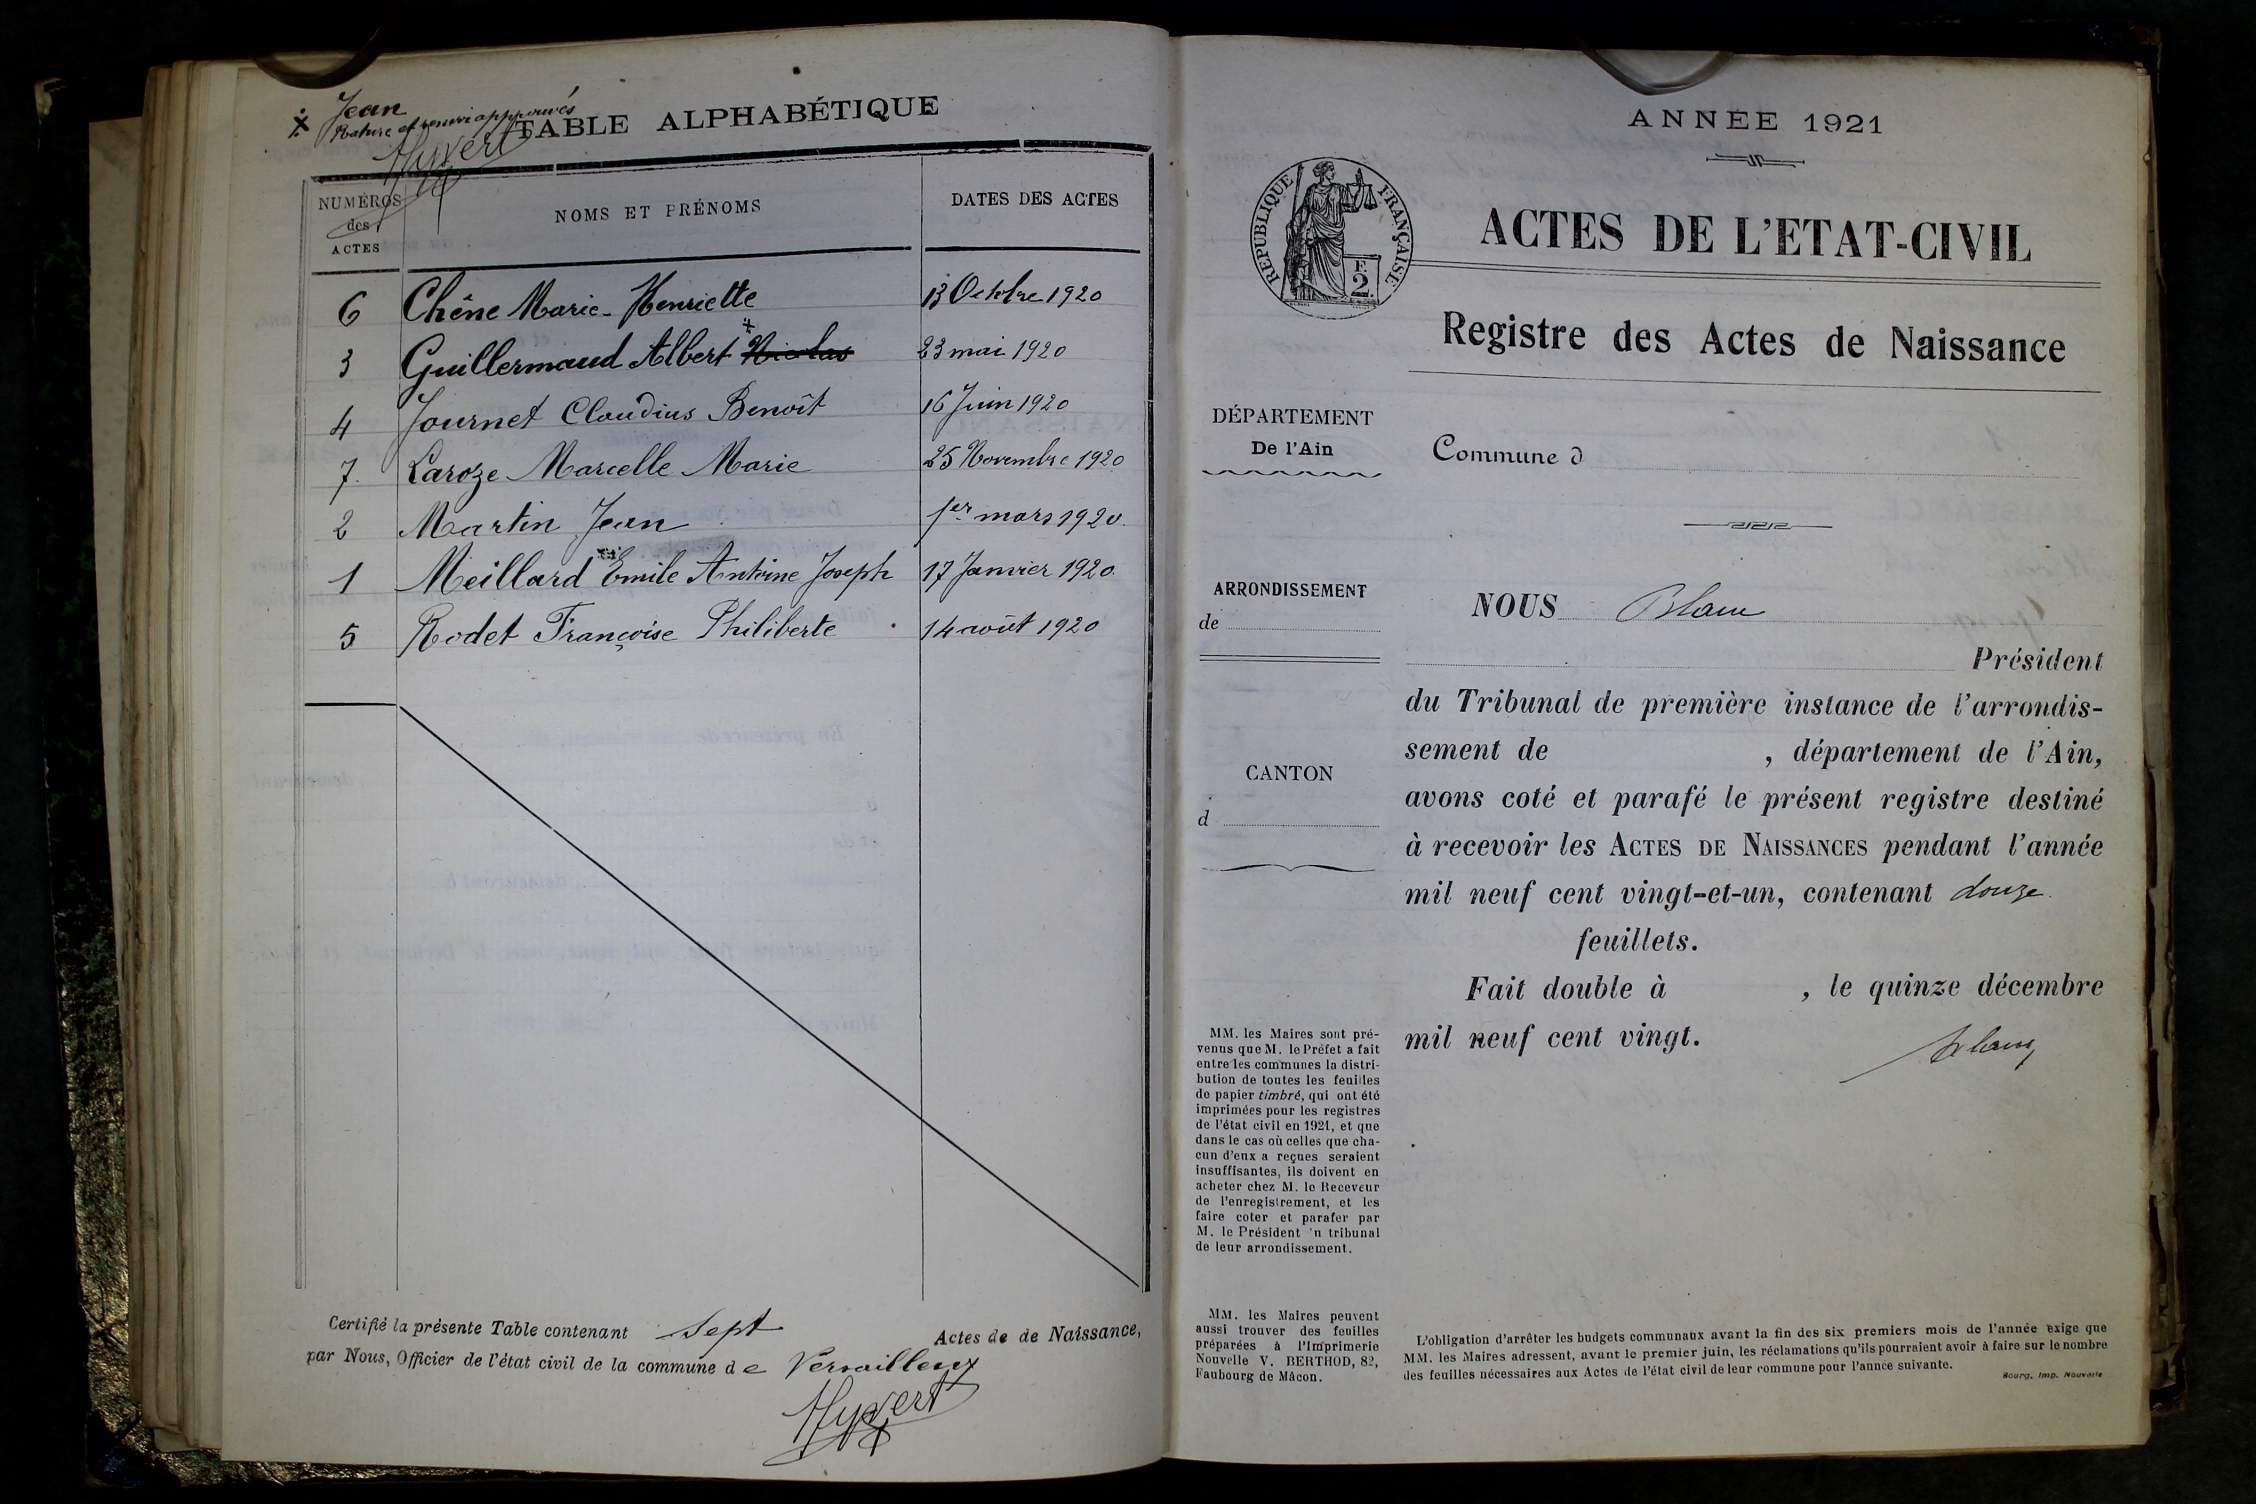 × Jean
Rature et renvoi approuvés
Hyvert
TABLE ALPHABÉTIQUE
NUMÉROS
des
ACTES
NOMS ET PRÉNOMS
DATES DES ACTES
6 Chêne Marie-Henriette 13 Octobre 1920
3 Guillermaud Albert × Nicolas 23 mai 1920
4 Journet Claudius Benoît 16 Juin 1920
7. Laroze Marcelle Marie 25 Novembre 1920
2 Martin Jean 1er mars 1920.
1 Meillard Emile Antoine Joseph 17 Janvier 1920.
5 Rodet Françoise Philiberte 14 août 1920
Certifié la présente Table contenant sept Actes de de Naissance,
par Nous, Officier de l'état civil de la commune de Versailleux
Hyvert
ANNÉE 1921
RÉPUBLIQUE FRANÇAISE
F.
2
ACTES DE L'ETAT-CIVIL
Registre des Actes de Naissance
DÉPARTEMENT
De l'Ain
Commune d
ARRONDISSEMENT
de
CANTON
d
NOUS Blanc
Président
du Tribunal de première instance de l'arrondis-
sement de , département de l'Ain,
avons coté et parafé le présent registre destiné
à recevoir les ACTES DE NAISSANCES pendant l'année
mil neuf cent vingt-et-un, contenant douze
feuillets.
Fait double à , le quinze décembre
mil neuf cent vingt.
Blanc
MM. les Maires sont pré-
venus que M. le Préfet a fait
entre les communes la distri-
bution de toutes les feuilles
de papier timbré, qui ont été
imprimées pour les registres
de l'état civil en 1921, et que
dans le cas où celles que cha-
cun d'eux a reçues seraient
insuffisantes, ils doivent en
acheter chez M. le Receveur
de l'enregistrement, et les
faire coter et parafer par
M. le Président 'n tribunal
de leur arrondissement.
MM. les Maires peuvent
aussi trouver des feuilles
préparées à l'Imprimerie
Nouvelle V. BERTHOD, 82,
Faubourg de Mâcon.
L'obligation d'arrêter les budgets communaux avant la fin des six premiers mois de l'année exige que
MM. les Maires adressent, avant le premier juin, les réclamations qu'ils pourraient avoir à faire sur le nombre
des feuilles nécessaires aux Actes de l'état civil de leur commune pour l'année suivante.
Bourg, Imp. Nouvelle